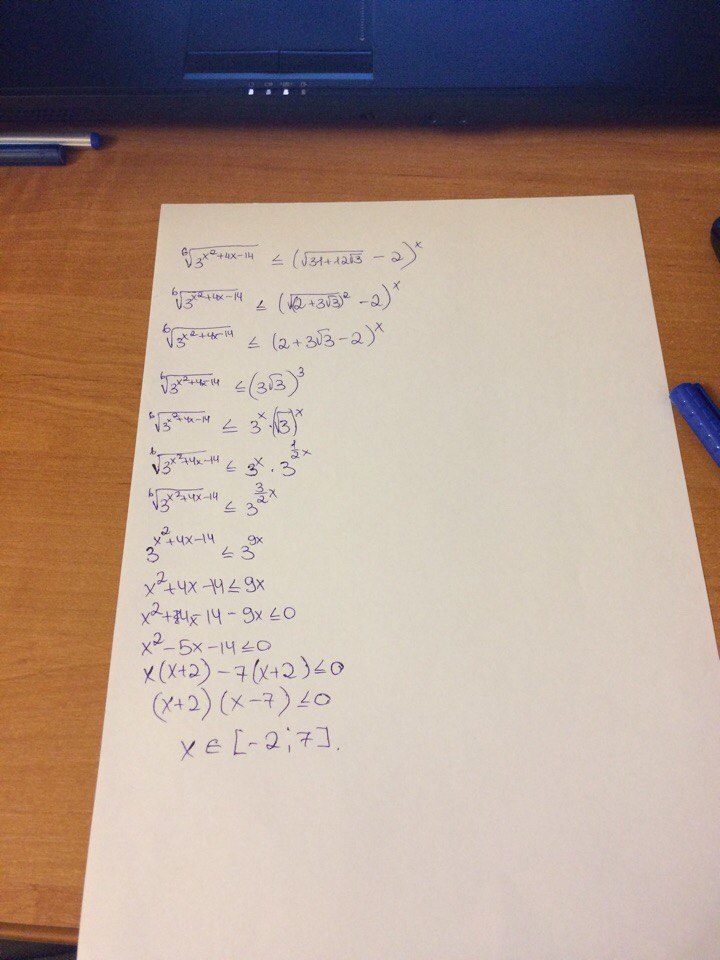 ⁶√(3^(x²+4x−14)) ≤ (√(31+12√3) − 2)^x
⁶√(3^(x²+4x−14)) ≤ (√((2+3√3)²) − 2)^x
⁶√(3^(x²+4x−14)) ≤ (2+3√3−2)^x
⁶√(3^(x²+4x−14)) ≤ (3√3)^3
⁶√(3^(x²+4x−14)) ≤ 3^x · (√3)^x
⁶√(3^(x²+4x−14)) ≤ 3^x · 3^(1/2 x)
⁶√(3^(x²+4x−14)) ≤ 3^(3/2 x)
3^(x²+4x−14) ≤ 3^(9x)
x²+4x−14 ≤ 9x
x²+4x−14−9x ≤ 0
x²−5x−14 ≤ 0
x(x+2)−7(x+2) ≤ 0
(x+2)(x−7) ≤ 0
x ∈ [−2; 7].